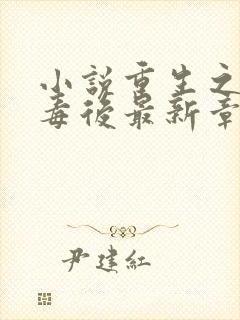 小说重生之
毒後最新章
尹建红